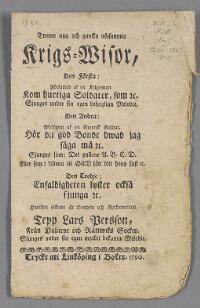 Trenne nya och ganska nöjsamma
Krigs-Wisor,
Den Första:
Författad af en Krigsman
Kom hurtiga Soldater, som &c.
Sjunges under sin egen behageliga Melodie.
Den Andra:
af en Swensk Soldat.
Hör du god Bonde hwad jag
säga må &c.
Sjunges som: Det gyldene A. B. C. D.
Eller som: Allena til GUD sätt ditt hopp fast &c.
Den Tredje:
Enfaldigheten lyster också
sjunga &c.
Hwilken
Tepp Lars Persson,
Från Dalarne och Rättwiks Socken.
Sjunges under sin egen mycket bekanta Melodie.
Tryckt uti Linköping i Bokw. 1790.